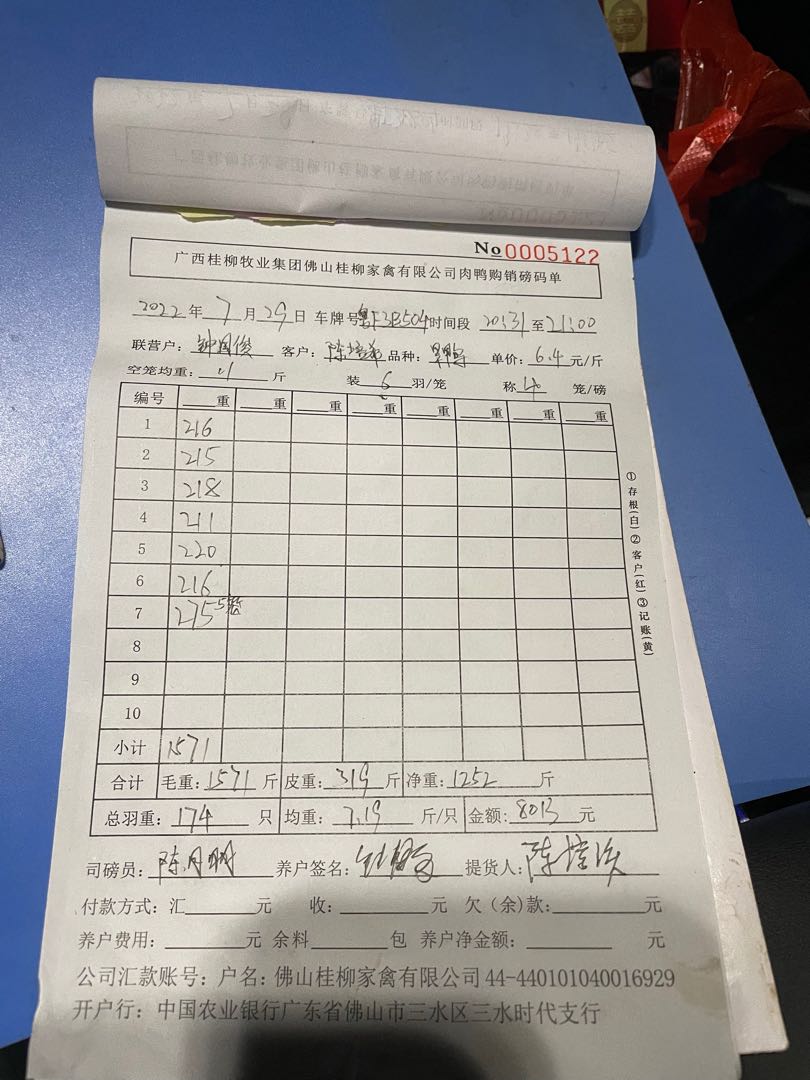 No 0005122
广西桂柳牧业集团佛山桂柳家禽有限公司肉鸭购销磅码单
2022年7月29日 车牌号粤F3B504时间段 20:31至21:00
联营户：钟国俊 客户：陈培 品种： 单价：6.4元/斤
空笼均重：11斤 装6羽/笼 称4笼/磅
编号 重 重 重 重 重 重 重 重
1 216
2 215
3 218
4 211
5 220
6 216
7 275 5笼
8
9
10
小计 1571
合计 毛重：1571斤 皮重：319斤 净重：1252斤
总羽重：174只 均重：7.19斤/只 金额：8013元
司磅员：陈月明 养户签名： 提货人：陈培
付款方式：汇 元 收： 元 欠（余）款： 元
养户费用： 元 余料 包 养户净金额： 元
公司汇款账号：户名：佛山桂柳家禽有限公司 44-440101040016929
开户行：中国农业银行广东省佛山市三水区三水时代支行
①存根(白)②客户(红)③记账(黄)